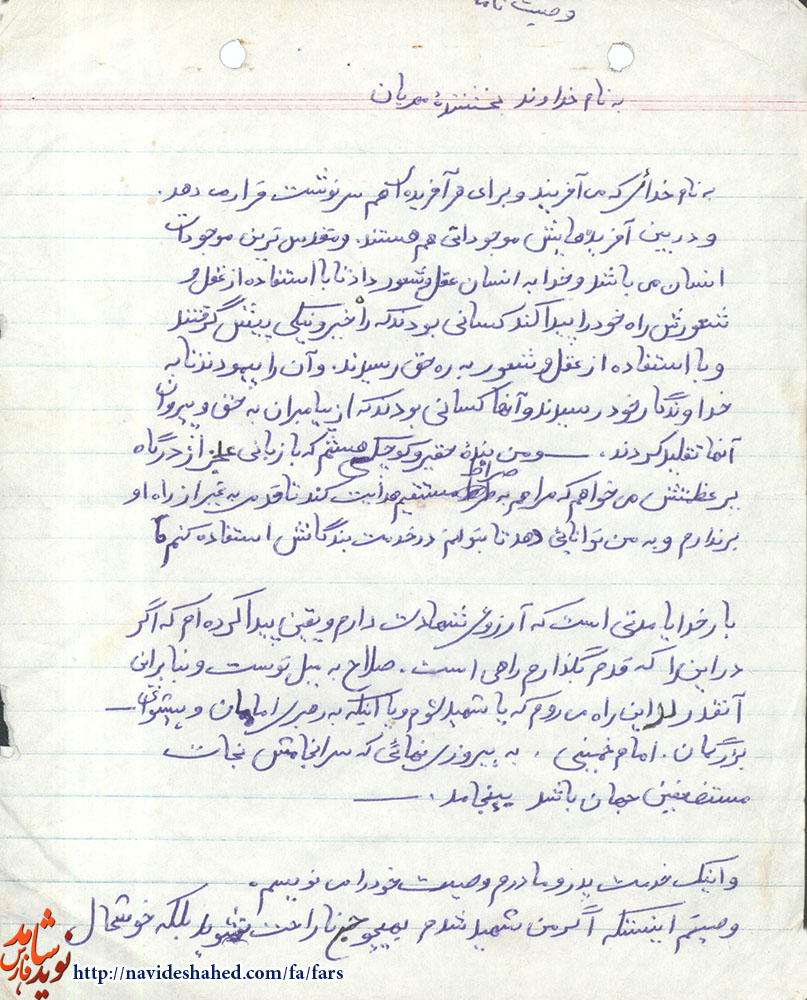 وصیت نامه
به نام خداوند بخشندهٔ مهربان
به نام خدائی که می آفریند و برای هر آفریده ای هم سرنوشت قرار می دهد.
و در بین آفریده هایش موجوداتی هم هستند. و مقدس ترین موجودات
انسان می باشد و خدا به انسان عقل و شعور داد تا با استفاده از عقل و
شعورش راه خود را پیدا کند کسانی بودند که راه خیر و نیکی پیش گرفتند
و با استفاده از عقل و شعور به ره حق رسیدند. و آن را پیمودند تا به
خداوندگار خود رسیدند و آنها کسانی بودند که از پیامبران به حق و پیروان
آنها تقلید کردند. و من بندهٔ حقیر و کوچکی هستم که با زبانی عاجز از درگاه
پر عظمتش می خواهم که مرا هم به صراط مستقیم هدایت کند تا قدمی به غیر از راه او
برندارم و به من توانایی دهد تا بتوانم در خدمت بندگانش استفاده کنم
بار خدایا مدتی است که آرزوی شهادت دارم و یقین پیدا کرده ام که اگر
در این را که قدم بگذارم راهی است. صلاح به میل توست و بنابراین
آنقدر در این راه می روم که یا شهید شوم و یا اینکه به رهبری اماممان و پیشوای
بزرگمان. امام خمینی، به پیروزی نهائی که سرانجامش نجات
مستضعفین جهان باشد بیانجامد.
و اینک خدمت پدر و مادرم وصیت خود را می نویسم.
وصیتم اینستکه اگر من شهید شدم بهیچ وجه ناراحت نشوید بلکه خوشحال
نوید شاهد فارس
http://navideshahed.com/fa/fars